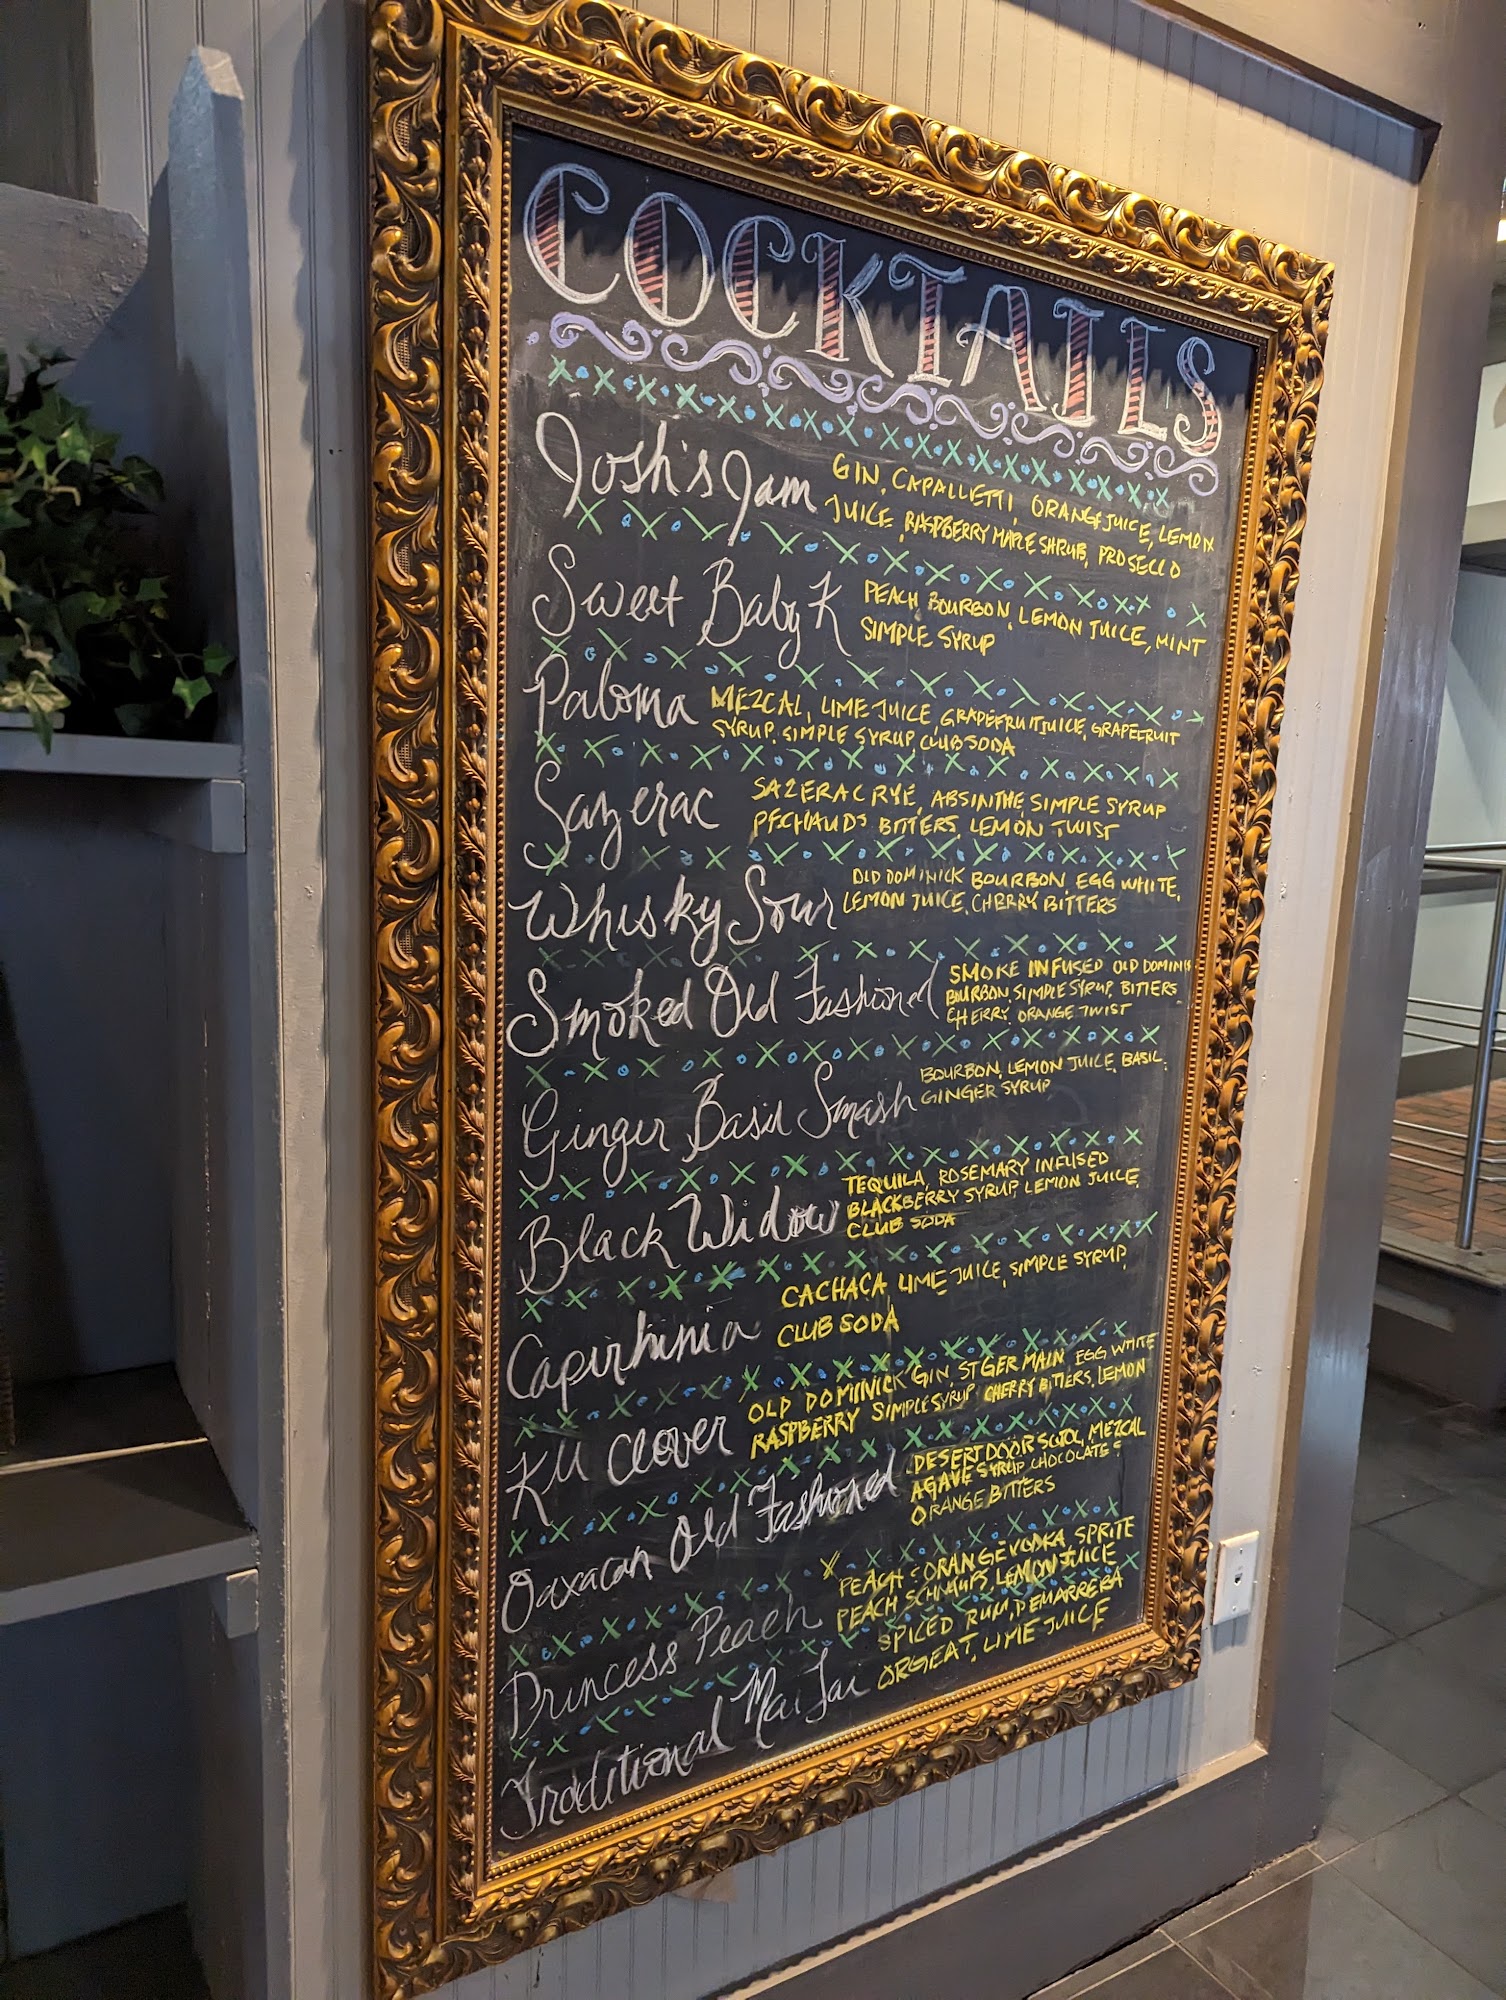 COCKTAILS
Josh's Jam GIN, CAPALLETTI, ORANGE JUICE, LEMON
JUICE, RASPBERRY MAPLE SHRUB, PROSECCO
Sweet Baby K PEACH, BOURBON, LEMON JUICE, MINT
SIMPLE SYRUP
Paloma MEZCAL, LIME JUICE, GRAPEFRUIT JUICE, GRAPEFRUIT
SYRUP, SIMPLE SYRUP, CLUB SODA
Sazerac SAZERAC RYE, ABSINTHE, SIMPLE SYRUP
PECHAUDS BITTERS, LEMON TWIST
Whisky Sour OLD DOMINICK BOURBON, EGG WHITE,
LEMON JUICE, CHERRY BITTERS
Smoked Old Fashioned SMOKE INFUSED OLD DOMINIC
BOURBON, SIMPLE SYRUP, BITTERS
CHERRY, ORANGE TWIST
Ginger Basil Smash BOURBON, LEMON JUICE, BASIL,
GINGER SYRUP
Black Widow TEQUILA, ROSEMARY INFUSED
BLACKBERRY SYRUP, LEMON JUICE
CLUB SODA
Capirhinia CACHACA LIME JUICE, SIMPLE SYRUP,
CLUB SODA
KU Clover OLD DOMINICK GIN, ST GERMAIN EGG WHITE
RASPBERRY SIMPLE SYRUP CHERRY BITTERS, LEMON
Oaxacan Old Fashioned DESERT DOOR SOTOL, MEZCAL
AGAVE SYRUP, CHOCOLATE &
ORANGE BITTERS
Princess Peach PEACH & ORANGE VODKA SPRITE
PEACH SCHNAPPS, LEMON JUICE
Traditional Mai Tai SPICED RUM, DEMARRERA
ORGEAT, LIME JUICE